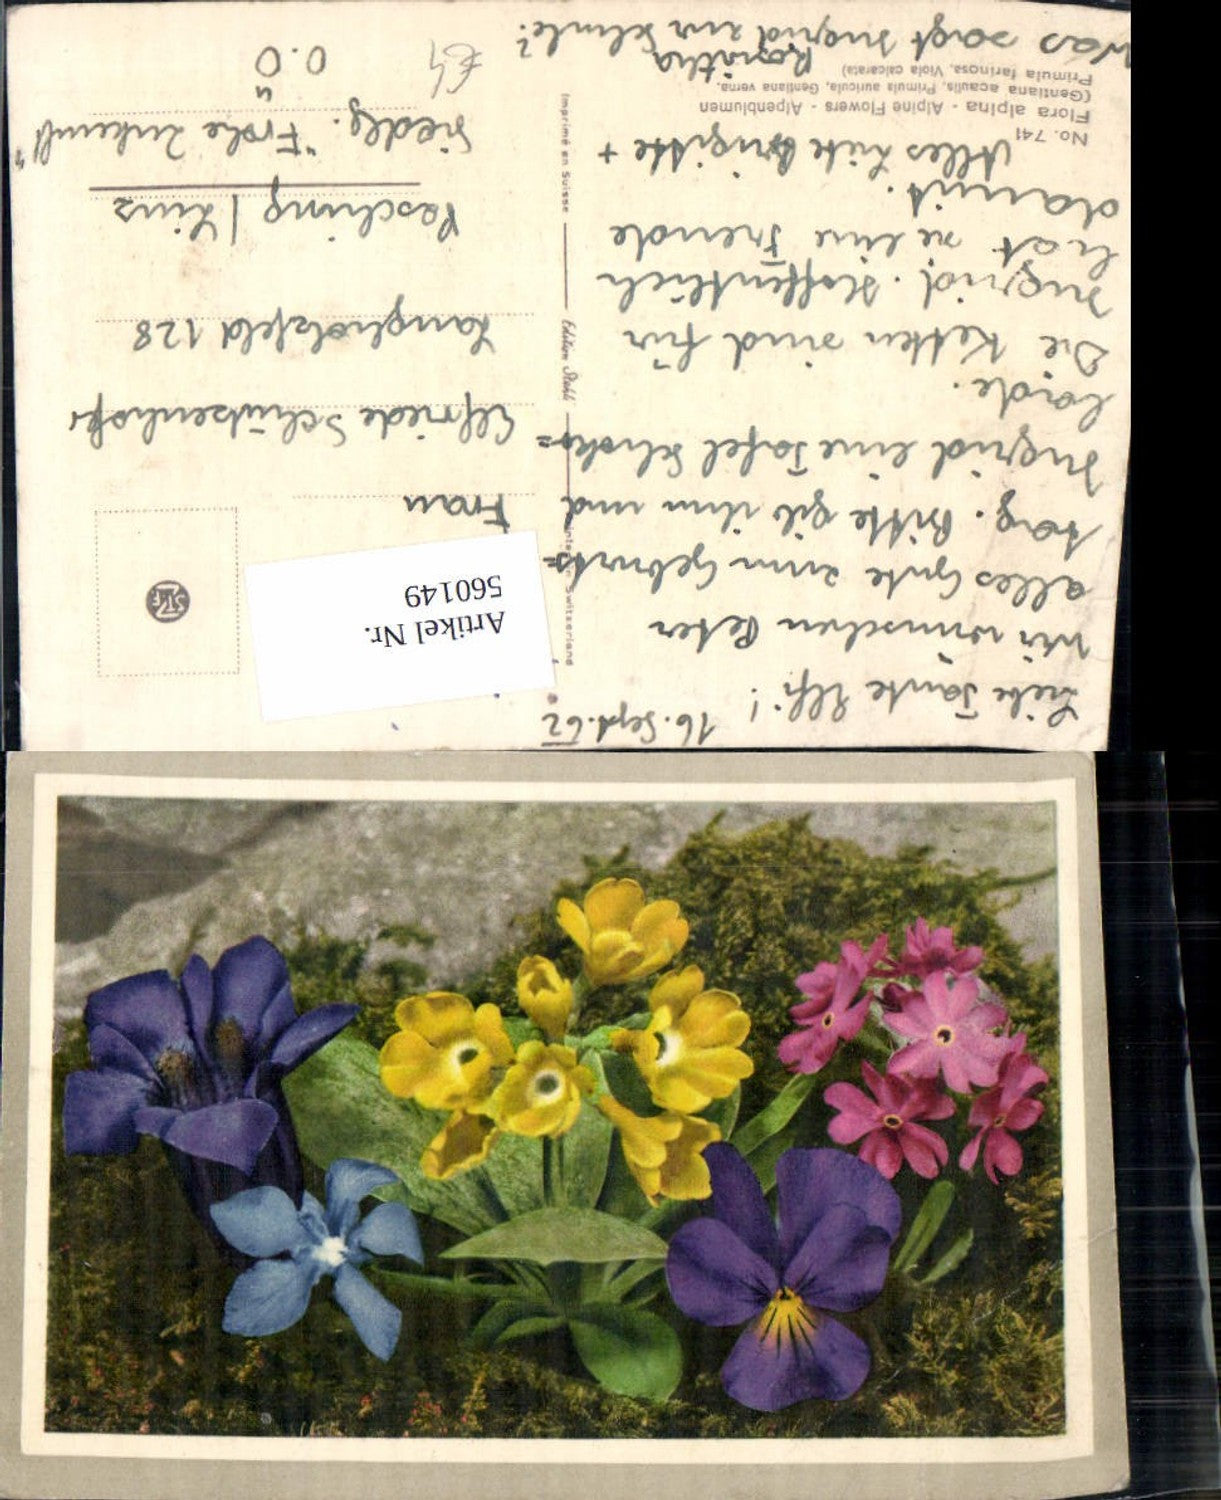 16. Sept. 62
Liebe Tante Elfi!
Wir wünschen Peter
alles Gute zum Geburts=
tag. Bitte gib ihm und
Ingrid eine Tafel Schoko=
lade.
Die Ketten sind für
Ingrid. Hoffentlich
hat sie eine Freude
damit.
Alles Liebe Brigitte +
Roswitha
Was sagt Ingrid zur Schule?
No. 741
Flora alpina - Alpine Flowers - Alpenblumen
(Gentiana acaulis, Primula auricula, Gentiana verna,
Primula farinosa, Viola calcarata)
Switzerland
Edition Stehli
Imprimé en Suisse
Artikel Nr.
560149
Frau
Elfriede Schützenhofer
Langholzfeld 128
Pasching / Linz
Siedlg. "Frohe Zukunft"
O.Ö